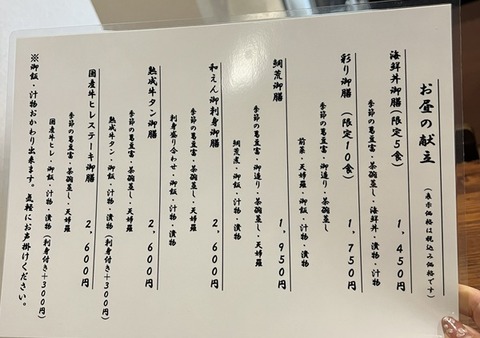 お昼の献立 (表示価格は税込み価格です)
海鮮丼御膳(限定5食) 1,450円
季節の葛豆富・茶碗蒸し・海鮮丼・漬物・汁物
彩り御膳 (限定10食) 1,750円
季節の葛豆富・御造り・茶碗蒸し
前菜・天婦羅・御飯・汁物・漬物
鯛荒御膳 1,950円
季節の葛豆富・御造り・茶碗蒸し・天婦羅
鯛荒煮・御飯・汁物・漬物
和えん御刺身御膳 2,600円
季節の葛豆富・茶碗蒸し・天婦羅
刺身盛り合わせ・御飯・汁物・漬物
熟成牛タン御膳 2,600円
季節の葛豆富・茶碗蒸し・天婦羅
熟成牛タン・御飯・汁物・漬物(刺身付き+300円)
国産牛ヒレステーキ御膳 2,600円
季節の葛豆富・茶碗蒸し・天婦羅
国産牛ヒレ・御飯・汁物・漬物 (刺身付き+300円)
※御飯・汁物おかわり出来ます。気軽にお声掛けください。